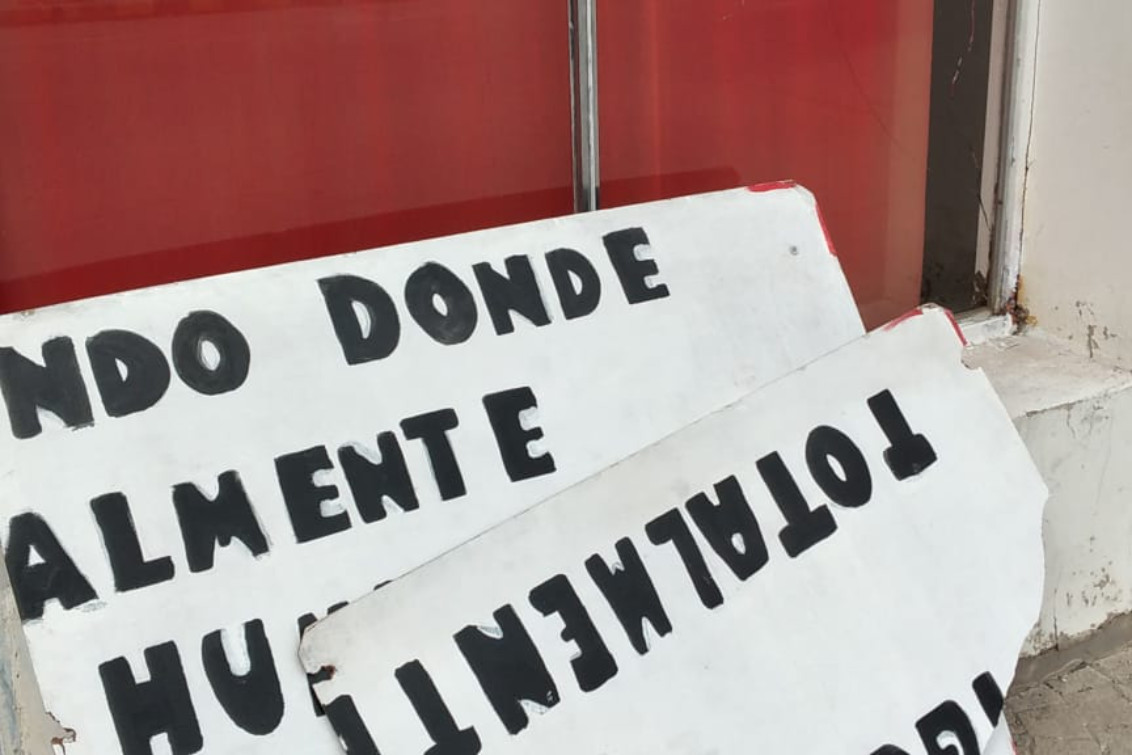 NDO DONDE
ALMENTE
HU
TOTALMENTE